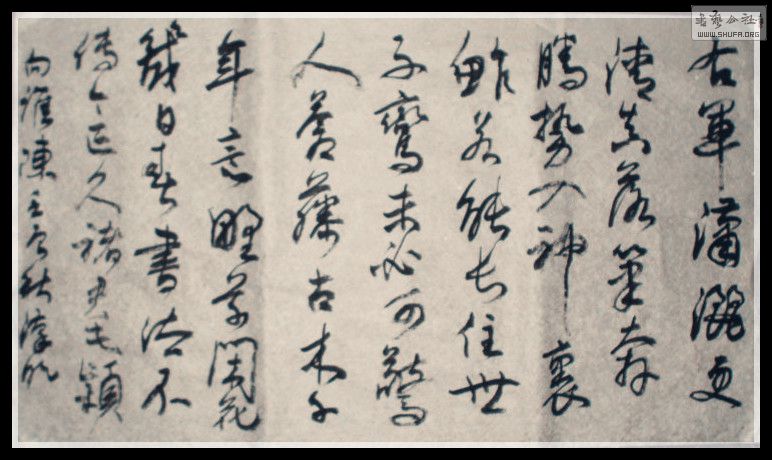 右軍瀟灑更
清真落筆奔
騰勢入神裏
鮓若能長住世
子鸞未必可驚
人蒼藤古木千
年意野草閒花
幾日春書法不
傳今已久褚君毛穎
向誰陳
書藝公社
WWW.SHUFA.ORG